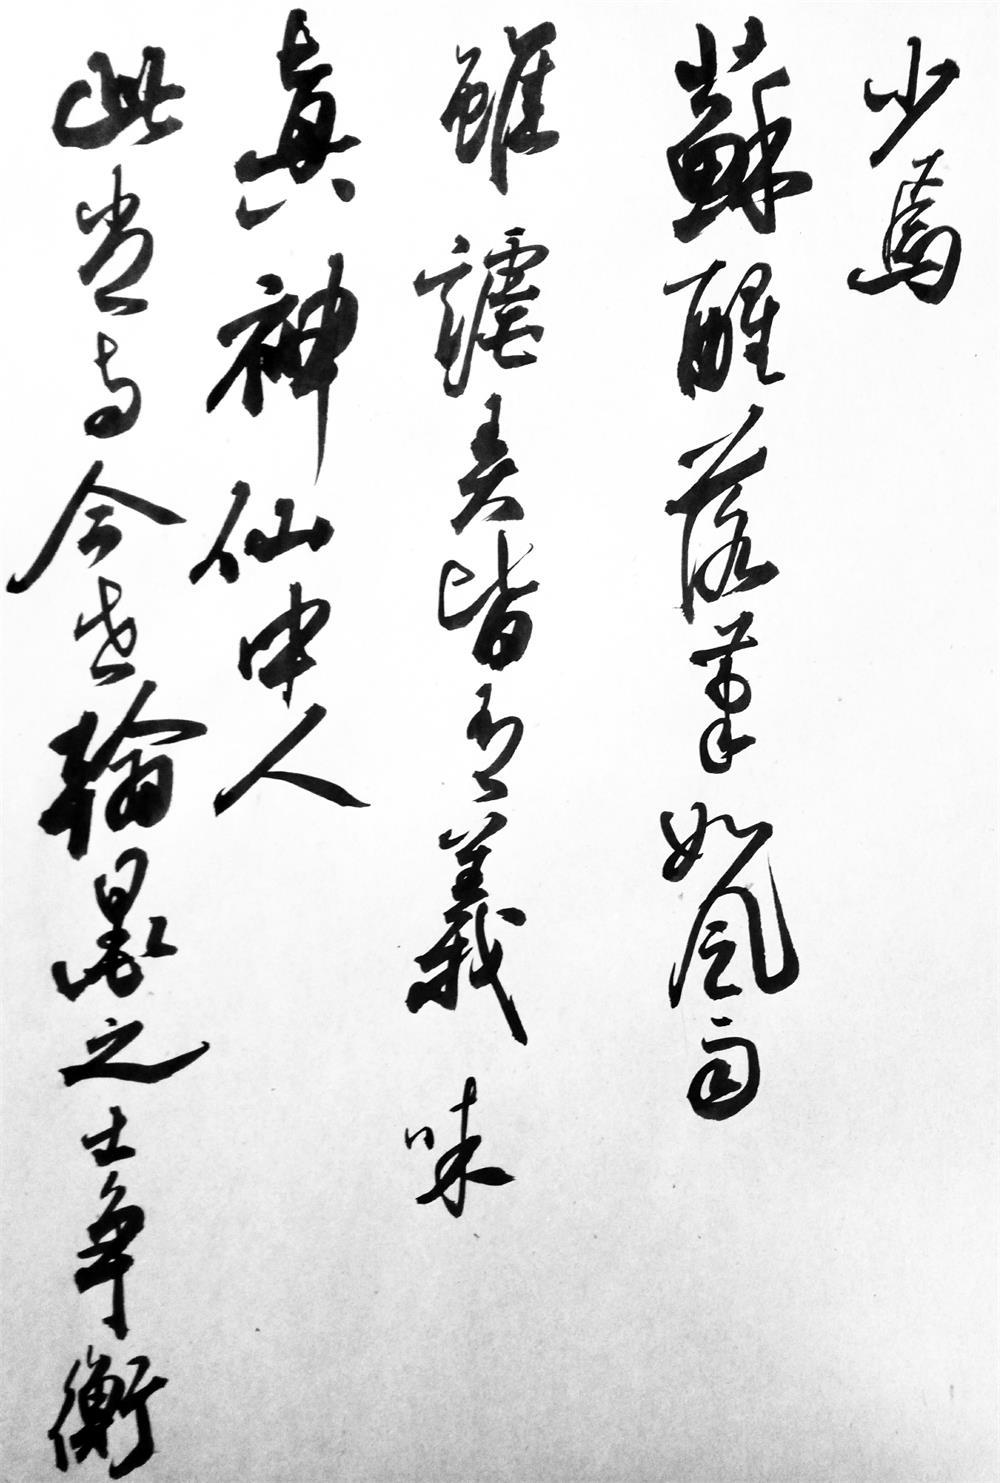 少焉
蘇醒落筆如風雨
雖謔弄皆有義味
真神仙中人
此豈與今世翰墨之士爭衡